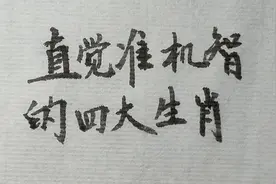 直觉准机智
的四大生肖